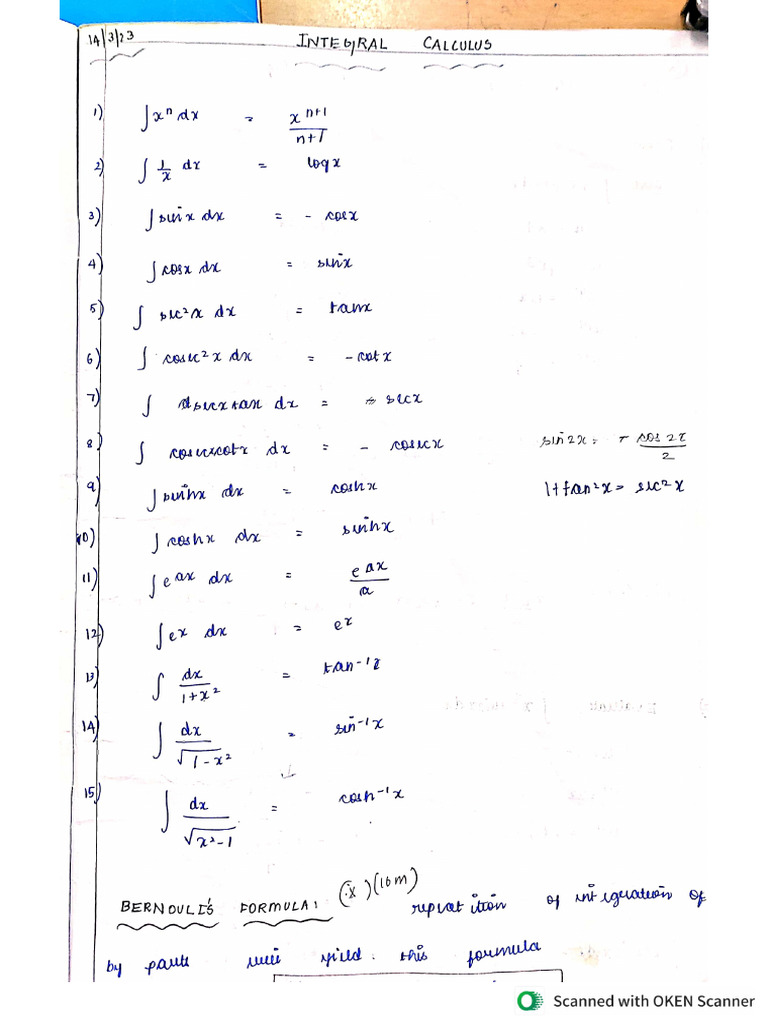 14/3/23 INTEGRAL CALCULUS
1) ∫xⁿ dx = xⁿ⁺¹/n+1
2) ∫ 1/x dx = log x
3) ∫ sin x dx = - cos x
4) ∫ cos x dx = sin x
5) ∫ sec²x dx = tan x
6) ∫ cosec²x dx = - cot x
7) ∫ secx tanx dx = sec x
8) ∫ cosecx cotx dx = - cosecx sin2x = - cos 2x/2
9) ∫ sinhx dx = coshx 1+tan²x = sec²x
10) ∫ coshx dx = sinhx
11) ∫ eᵃˣ dx = eᵃˣ/a
12) ∫ eˣ dx = eˣ
13) ∫ dx/1+x² = tan⁻¹x
14) ∫ dx/√1-x² = sin⁻¹x
15) ∫ dx/√x²-1 = cosh⁻¹x
BERNOULI'S FORMULA: (x)(10m) repeat ition of integration of
by parts will yield this formula
Scanned with OKEN Scanner